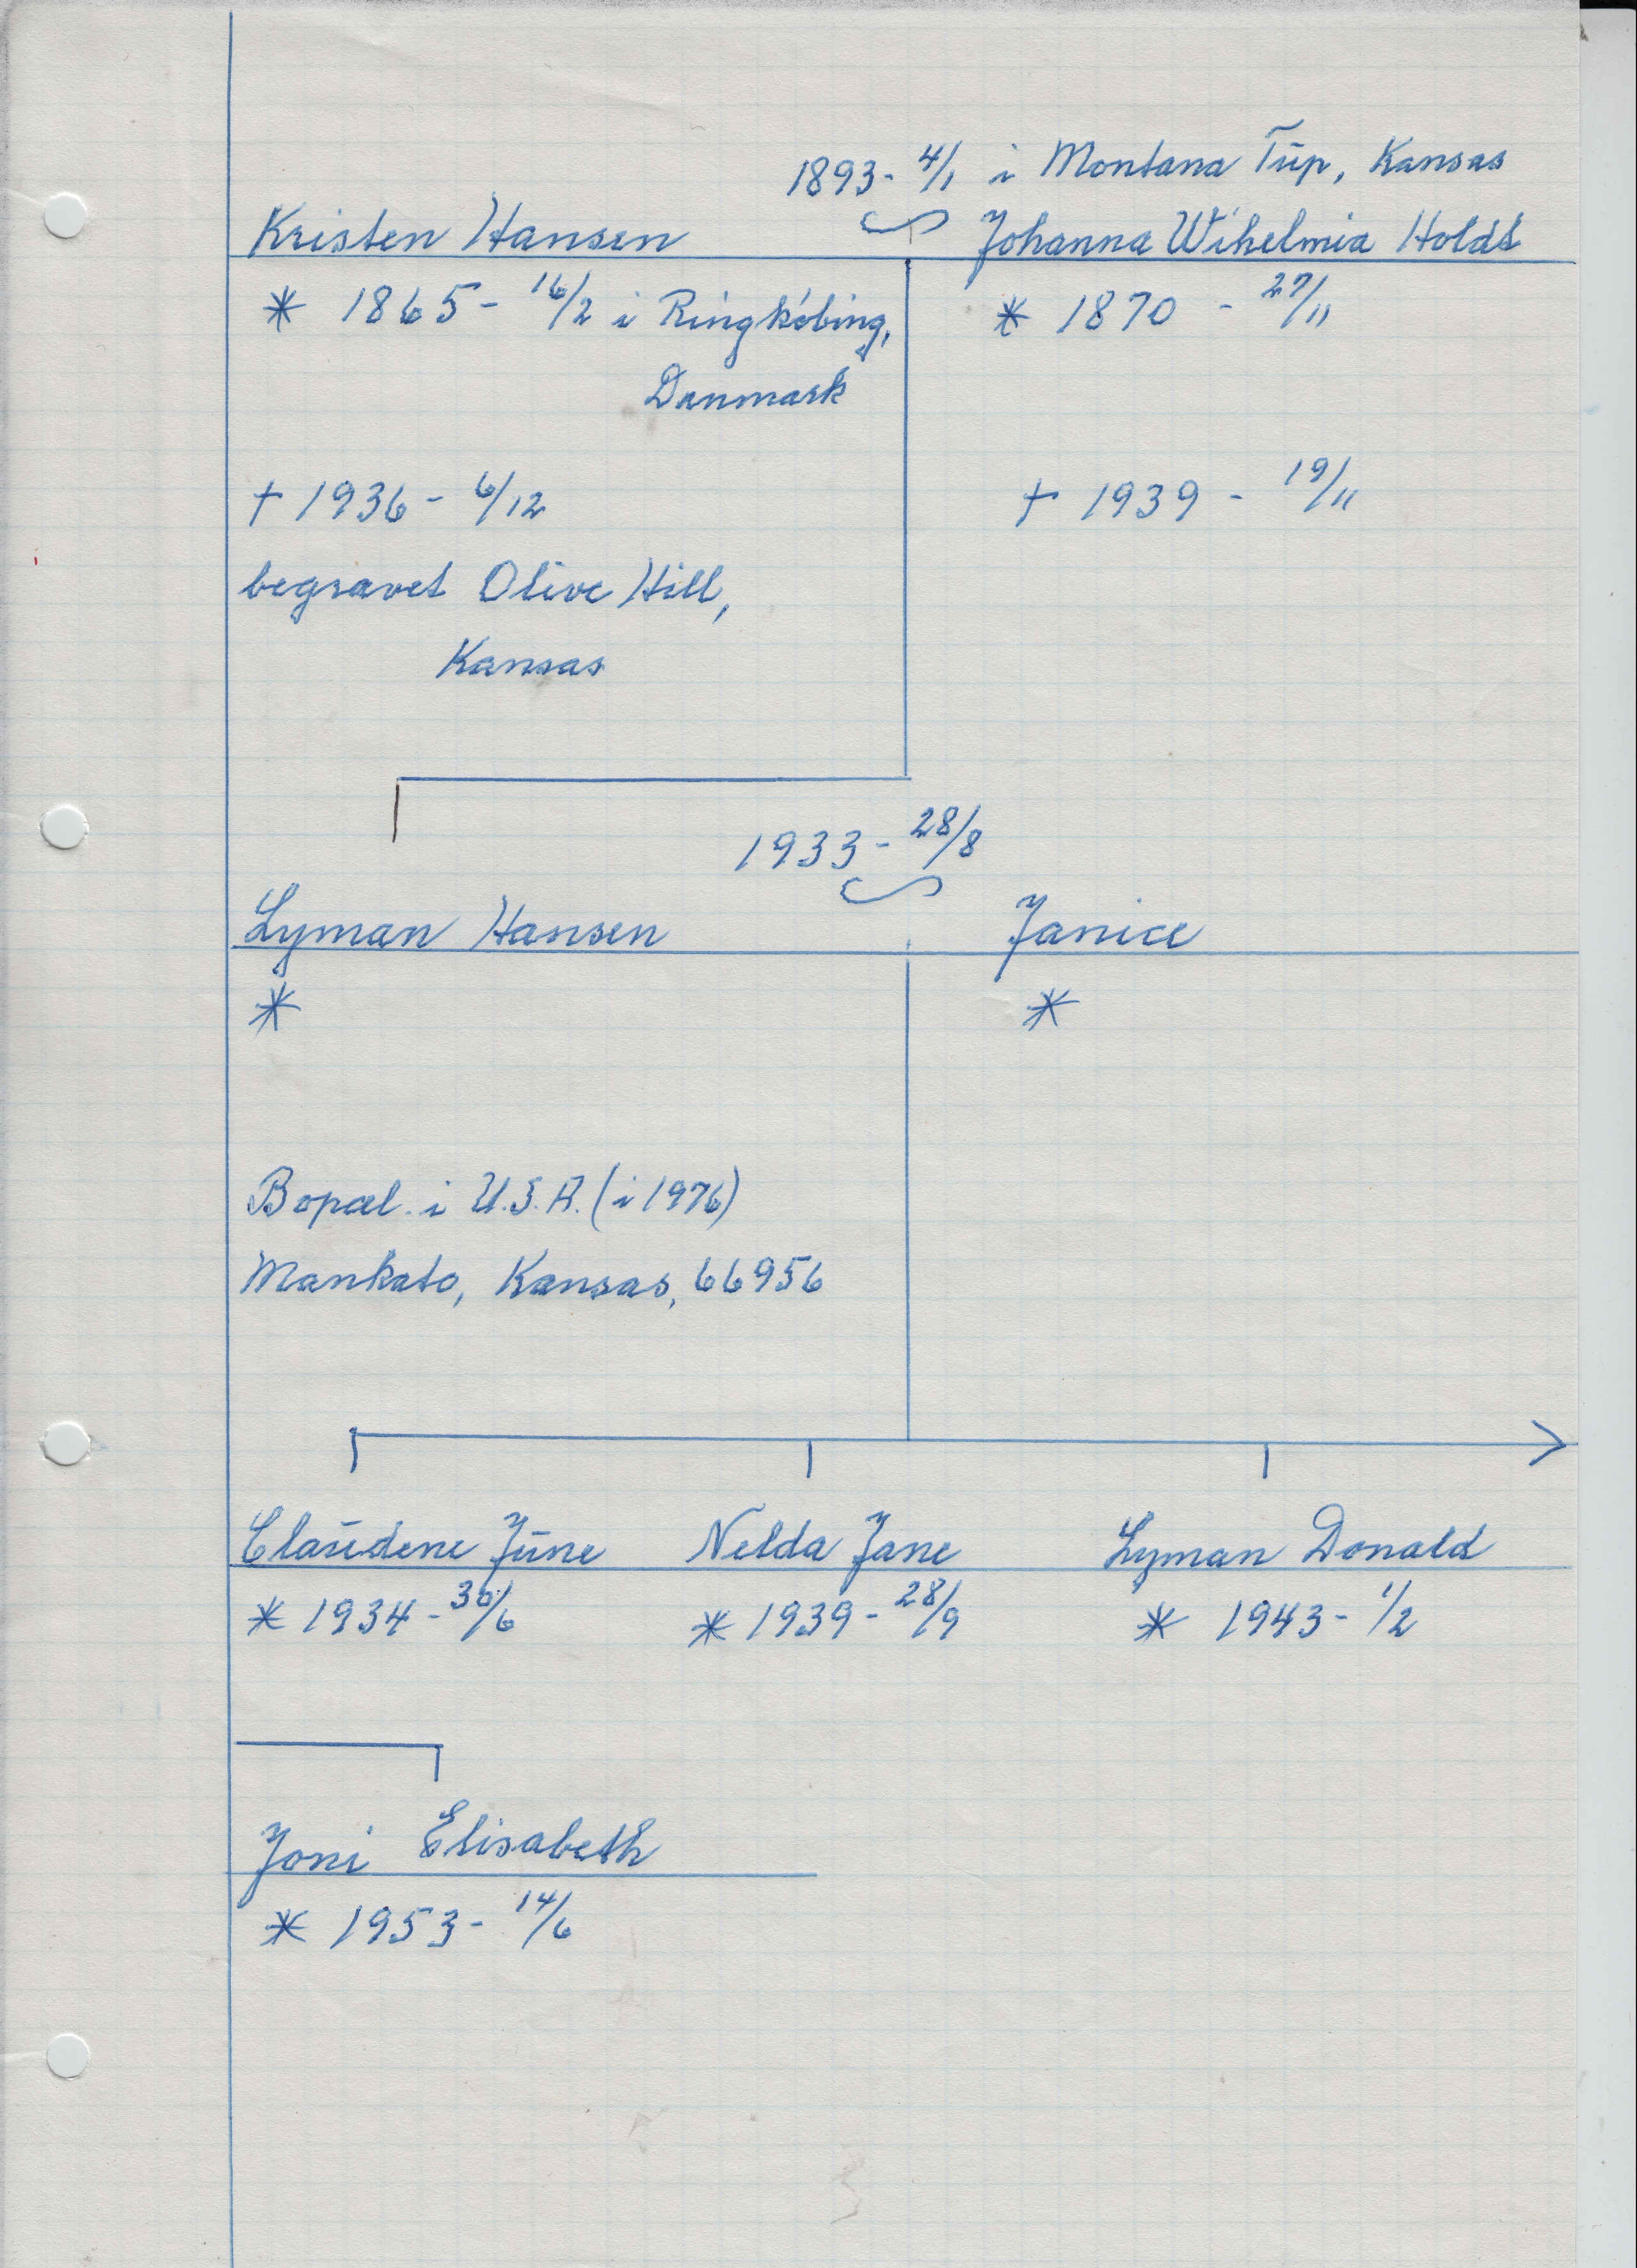 1893 - 4/1 i Montana Tup, Kansas
Kristen Hansen Johanna Wihelmia Holdt
* 1865 - 16/2 i Ringköbing, * 1870 - 27/11
Danmark
† 1936 - 6/12 † 1939 - 19/11
begravet Olive Hill,
Kansas
1933 - 28/8
Lyman Hansen Janice
* *
Bopæl i U.S.A. (i 1976)
Mankato, Kansas, 66956
Claudene June Nelda Jane Lyman Donald
* 1934 - 30/6 * 1939 - 28/9 * 1943 - 1/2
Joni Elisabeth
* 1953 - 14/6